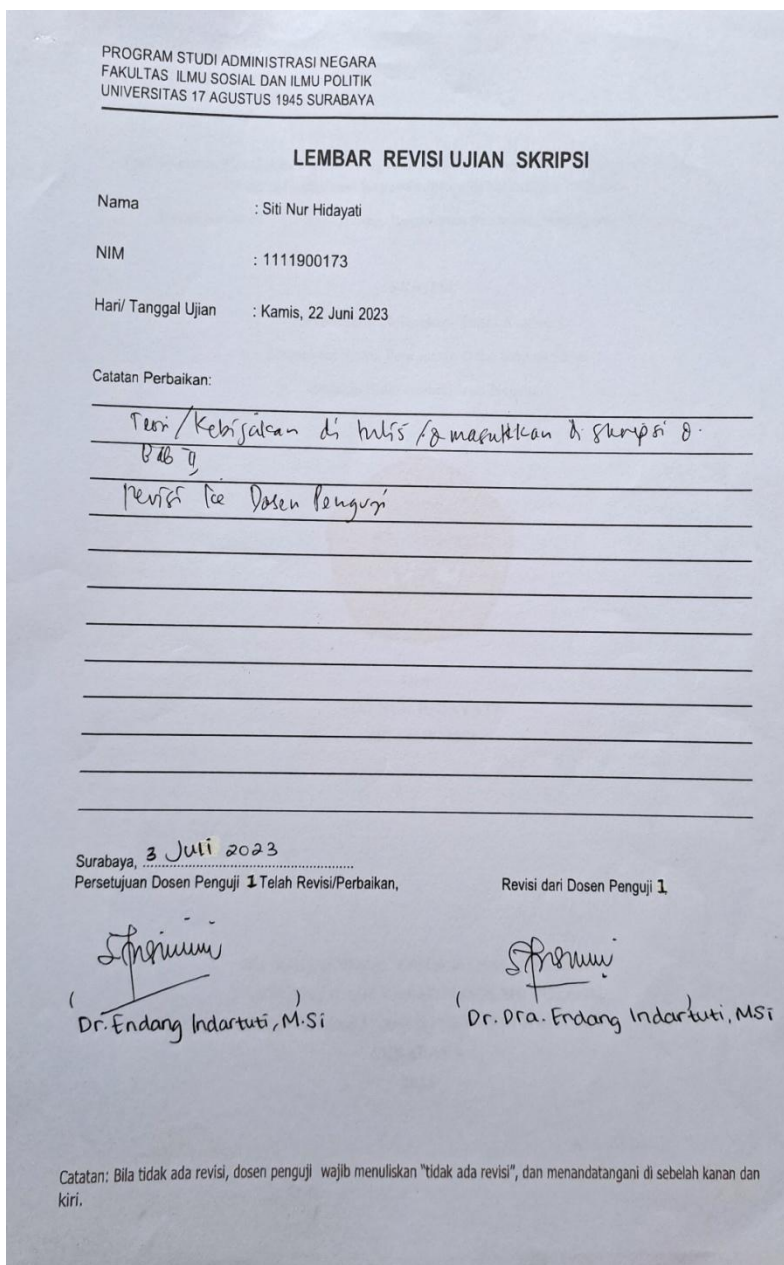 PROGRAM STUDI ADMINISTRASI NEGARA
FAKULTAS ILMU SOSIAL DAN ILMU POLITIK
UNIVERSITAS 17 AGUSTUS 1945 SURABAYA
LEMBAR REVISI UJIAN SKRIPSI
Nama : Siti Nur Hidayati
NIM : 1111900173
Hari/ Tanggal Ujian : Kamis, 22 Juni 2023
Catatan Perbaikan:
Teori/Kebijakan di tulis / di skripsi
Bab II
revisi ke Dosen Penguji
Surabaya, 3 Juli 2023
Persetujuan Dosen Penguji 1 Telah Revisi/Perbaikan, Revisi dari Dosen Penguji 1
( ) ( )
Dr. Endang Indartuti, M.Si Dr. Dra. Endang Indartuti, MSi
Catatan: Bila tidak ada revisi, dosen penguji wajib menuliskan "tidak ada revisi", dan menandatangani di sebelah kanan dan
kiri.